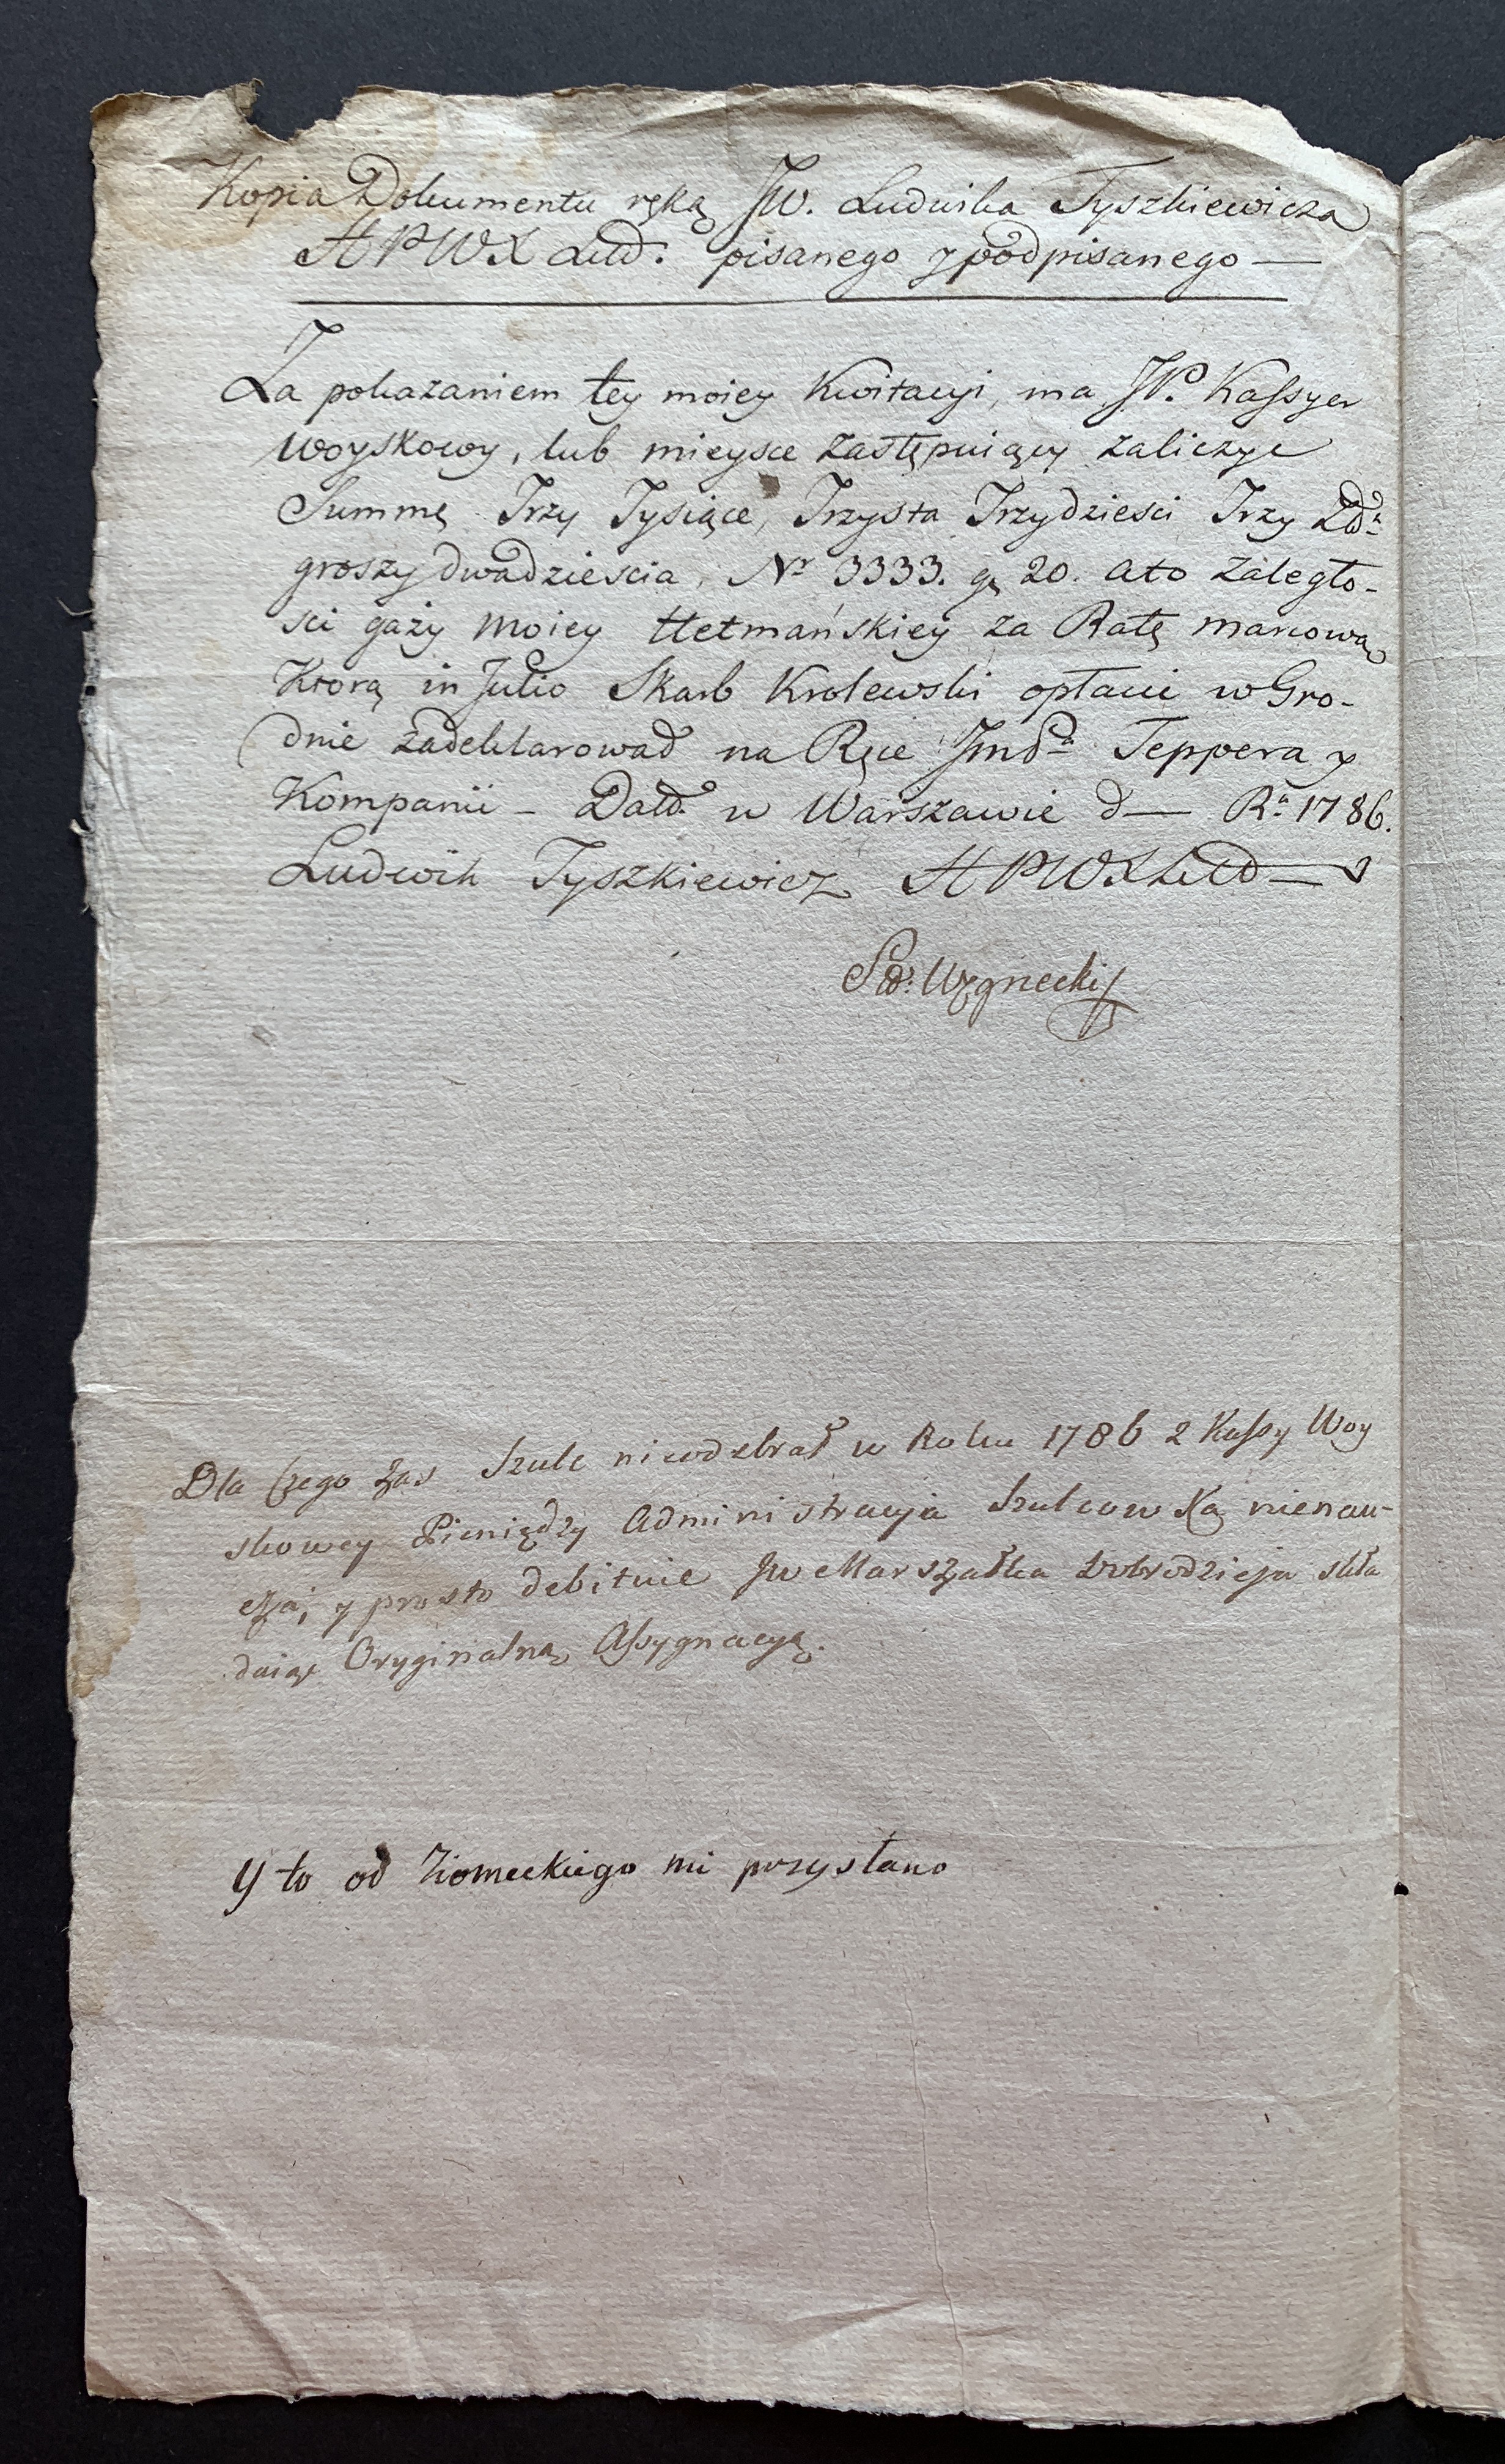 Kopia Dokumentu ręką JW. Ludwika Tyszkiewicza
HPWXLitt: pisanego y podpisanego —
Za pokazaniem tey moiey Kwitacyi, ma JP. Kassyer
Woyskowy, lub mieysce zastępuiący zaliczyc
Summę Trzy Tysiące, Trzysta Trzydziesci Trzy Złł:
groszy dwadziescia, Nr 3333. g 20. a to zaległo-
sci gaży moiey Hetmańskiey za Ratę marcową
Ktorą in Julio Skarb Krolewski opłacic w Gro-
dnie zadeklarował na Ręce Teppera y
Kompanii – Datt. w Warszawie d — Rn 1786.
Ludwik Tyszkiewicz HPWXLitt —
Dla czego zas Szulc nieodebrał w Roku 1786 z Kassy Woy
skowey Pieniędzy Administracyia Szulcowska nienau-
cza, y prosto debituie JW Marszałka Dobrodzieja skła
daiąc Oryginalną Assygnacyą.
Y to od Ziomeckiego mi przysłano